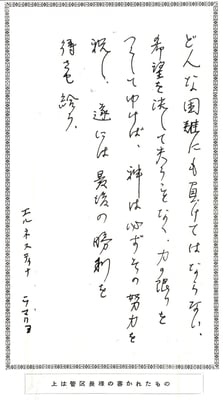 どんな困難にも負けてはならない。
希望を決して失うことなく、力の限りを
つくしてゆけば、神は必ずその努力を
祝し、遂には最後の勝利を
得させ給う。
エルネスティナ
ラマリヨ
上は管区長様の書かれたもの